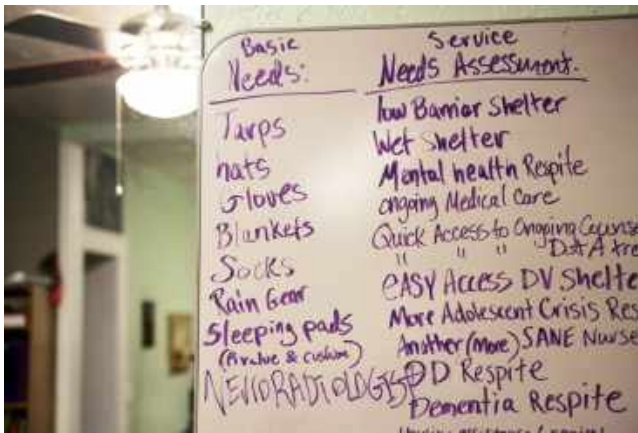 Basic
Needs:
Tarps
hats
Gloves
Blankets
Socks
Rain Gear
Sleeping pads
(R value & cushion)
Service
Needs Assessment.
low Barrier Shelter
Wet shelter
Mental health Respite
ongoing Medical Care
Quick Access to Ongoing Counse
" " " D&A tre
eASY Access DV Shelte
More Adolescent Crisis Res
Another (more) SANE Nurse
DD Respite
Dementia Respite